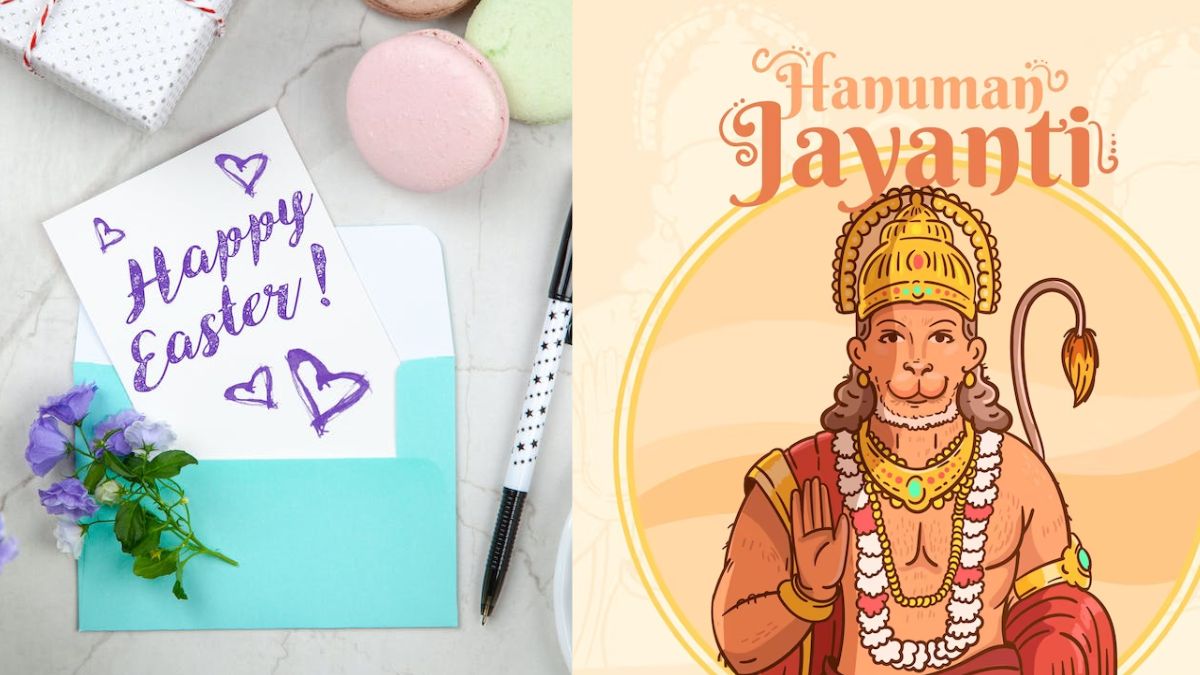 Happy
Easter!
Hanuman
Jayanti